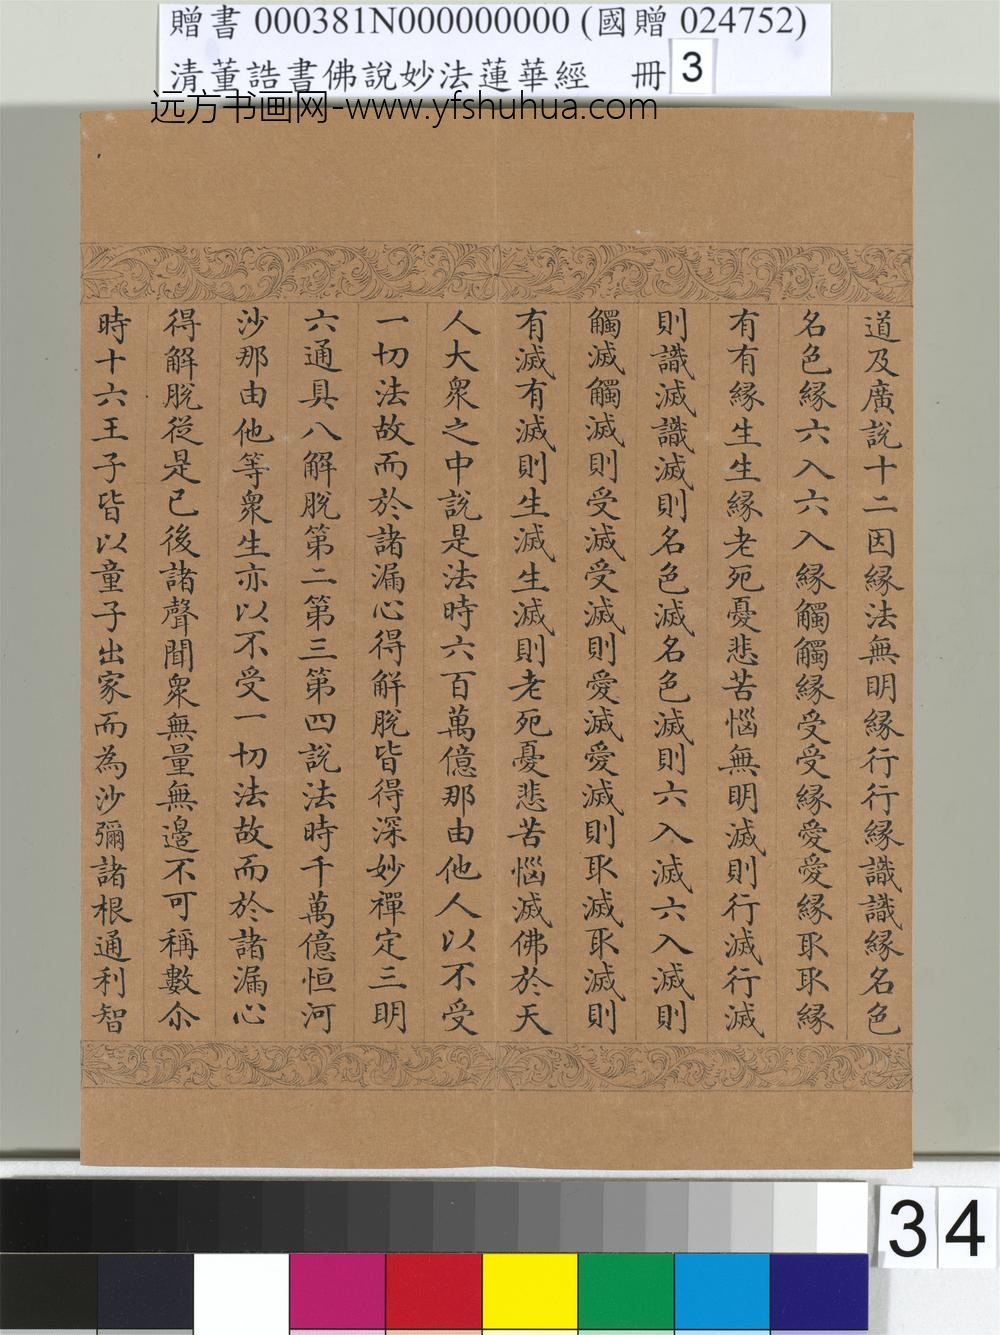 贈書 000381N000000000 (國贈 024752)
清董誥書佛說妙法蓮華經 冊 3
远方书画网-www.yfshuhua.com
道及廣說十二因緣法無明緣行行緣識識緣名色
名色緣六入六入緣觸觸緣受受緣愛愛緣取取緣
有有緣生生緣老死憂悲苦惱無明滅則行滅行滅
則識滅識滅則名色滅名色滅則六入滅六入滅則
觸滅觸滅則受滅受滅則愛滅愛滅則取滅取滅則
有滅有滅則生滅生滅則老死憂悲苦惱滅佛於天
人大眾之中說是法時六百萬億那由他人以不受
一切法故而於諸漏心得解脫皆得深妙禪定三明
六通具八解脫第二第三第四說法時千萬億恒河
沙那由他等眾生亦以不受一切法故而於諸漏心
得解脫從是已後諸聲聞眾無量無邊不可稱數尒
時十六王子皆以童子出家而為沙彌諸根通利智
34